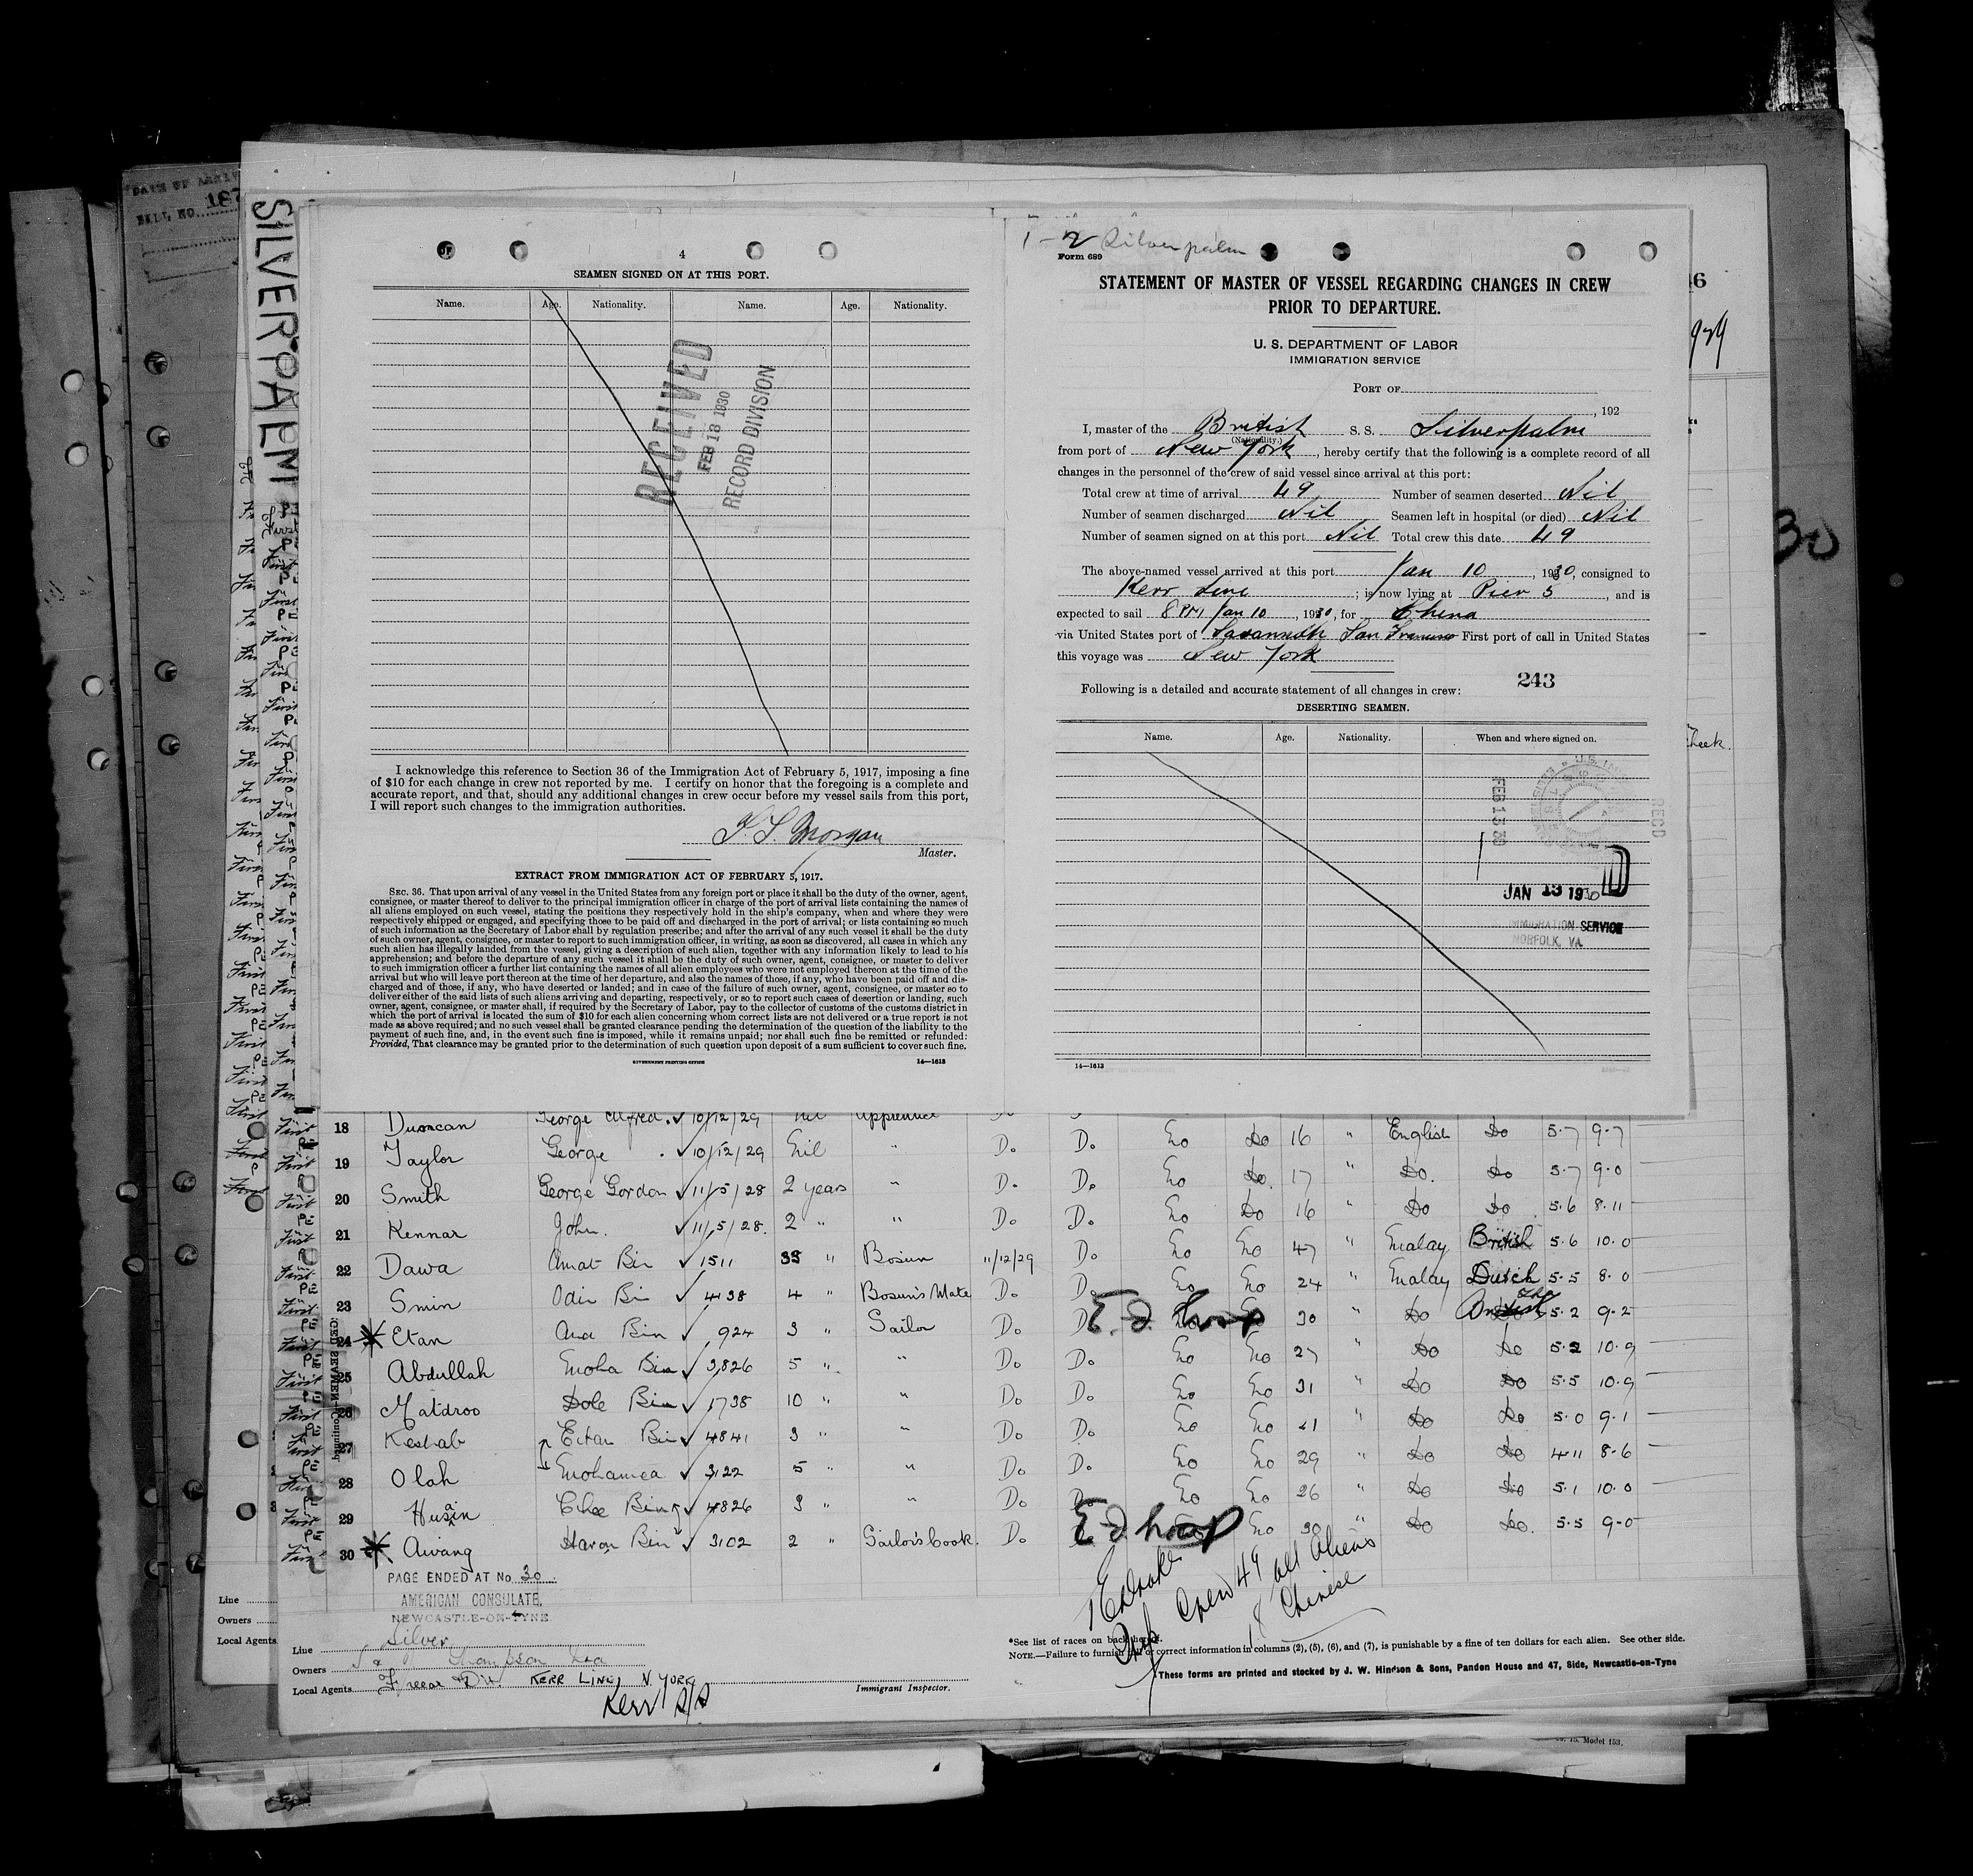 DATE OF ARRIV
BILL NO. 187
SILVERPALM
4
SEAMEN SIGNED ON AT THIS PORT.
Name. Age. Nationality. Name. Age. Nationality.
RECEIVED
FEB 18 1930
RECORD DIVISION
I acknowledge this reference to Section 36 of the Immigration Act of February 5, 1917, imposing a fine
of $10 for each change in crew not reported by me. I certify on honor that the foregoing is a complete and
accurate report, and that, should any additional changes in crew occur before my vessel sails from this port,
I will report such changes to the immigration authorities.
Morgan
Master.
EXTRACT FROM IMMIGRATION ACT OF FEBRUARY 5, 1917.
SEC. 36. That upon arrival of any vessel in the United States from any foreign port or place it shall be the duty of the owner, agent,
consignee, or master thereof to deliver to the principal immigration officer in charge of the port of arrival lists containing the names of
all aliens employed on such vessel, stating the positions they respectively hold in the ship's company, when and where they were
respectively shipped or engaged, and specifying those to be paid off and discharged in the port of arrival; or lists containing so much
of such information as the Secretary of Labor shall by regulation prescribe; and after the arrival of any such vessel it shall be the duty
of such owner, agent, consignee, or master to report to such immigration officer, in writing, as soon as discovered, all cases in which any
such alien has illegally landed from the vessel, giving a description of such alien, together with any information likely to lead to his
apprehension; and before the departure of any such vessel it shall be the duty of such owner, agent, consignee, or master to deliver
to such immigration officer a further list containing the names of all alien employees who were not employed thereon at the time of the
arrival but who will leave port thereon at the time of her departure, and also the names of those, if any, who have been paid off and dis-
charged and of those, if any, who have deserted or landed; and in case of the failure of such owner, agent, consignee, or master so to
deliver either of the said lists of such aliens arriving and departing, respectively, or so to report such cases of desertion or landing, such
owner, agent, consignee, or master shall, if required by the Secretary of Labor, pay to the collector of customs of the customs district in
which the port of arrival is located the sum of $10 for each alien concerning whom correct lists are not delivered or a true report is not
made as above required; and no such vessel shall be granted clearance pending the determination of the question of the liability to the
payment of such fine, and, in the event such fine is imposed, while it remains unpaid; nor shall such fine be remitted or refunded:
Provided, That clearance may be granted prior to the determination of such question upon deposit of a sum sufficient to cover such fine.
GOVERNMENT PRINTING OFFICE 14—1613
Silverpalm
Form 689
STATEMENT OF MASTER OF VESSEL REGARDING CHANGES IN CREW
PRIOR TO DEPARTURE.
U. S. DEPARTMENT OF LABOR
IMMIGRATION SERVICE
PORT OF
, 192
I, master of the British S. S. Silverpalm
(Nationality.)
from port of New York, hereby certify that the following is a complete record of all
changes in the personnel of the crew of said vessel since arrival at this port:
Total crew at time of arrival 49 Number of seamen deserted Nil
Number of seamen discharged Nil Seamen left in hospital (or died) Nil
Number of seamen signed on at this port Nil Total crew this date 49
The above-named vessel arrived at this port Jan 10, 1930, consigned to
Kerr Line; is now lying at Pier 5, and is
expected to sail 8 PM Jan 10, 1930, for China
via United States port of Savannah San Francisco First port of call in United States
this voyage was New York
243
Following is a detailed and accurate statement of all changes in crew:
DESERTING SEAMEN.
Name. Age. Nationality. When and where signed on.
FEB 13 30
RECD
JAN 13 1930
IMMIGRATION SERVICE
NORFOLK, VA.
14—1613
18 Duncan George Alfred. ✓ 10/12/29 Nil Apprentice Do Do No Do 16 " English Do 5.7 9.7
19 Taylor George ✓ 10/12/29 Nil " Do Do No Do. 17 " Do. Do 5.7 9.0
20 Smith George Gordon ✓ 11/5/28 2 years " Do Do No Do 16 " Do Do 5.6 8.11
21 Kennar John. ✓ 11/5/28. 2 " " Do Do No No 47 " Malay British 5.6 10.0
22 Dawa Amat Bin ✓ 1511 35 " Bosun 11/12/29 Do No No 24 " Malay Dutch 5.5 8.0
23 Smin Odin Bin ✓ 4438 4 " Bosun's Mate Do Do No No 30 " Do 5.2 9.2
24 Etan Bin ✓ 924 3 " Sailor Do Do No No 27 " Do Do 5.2 10.9
25 Abdullah Bin ✓ 3826 5 " " Do Do No No 31 " Do Do 5.5 10.9
26 Matdroo Dole Bin ✓ 1738 10 " " Do Do No No 21 " Do Do 5.0 9.1
27 Keshab Bin ✓ 4841 3 " " Do Do No No 29 " Do Do 4.11 8.6
28 Olah ✓ 3122 5 " " Do Do No No 26 " Do Do 5.1 10.0
29 Husain Chee Bin ✓ 4826 3 " " Do Do No No 30 " Do Do. 5.5 9.0
30 Awang Haron Bin ✓ 3102 2 " Sailor's Cook. Do
PAGE ENDED AT No. 30
AMERICAN CONSULATE,
NEWCASTLE-ON-TYNE
Crew 49 all Aliens
18 Chinese
Line Silver
Owners Thompson
Local Agents KERR LINE, N. YORK.
Kerr S/S
Immigrant Inspector.
*See list of races on back hereof.
NOTE.—Failure to furnish full or correct information in columns (2), (5), (6), and (7), is punishable by a fine of ten dollars for each alien. See other side.
These forms are printed and stocked by J. W. Hindson & Sons, Pandon House and 47, Side, Newcastle-on-Tyne
Line
Owners
Local Agents
Model 153.